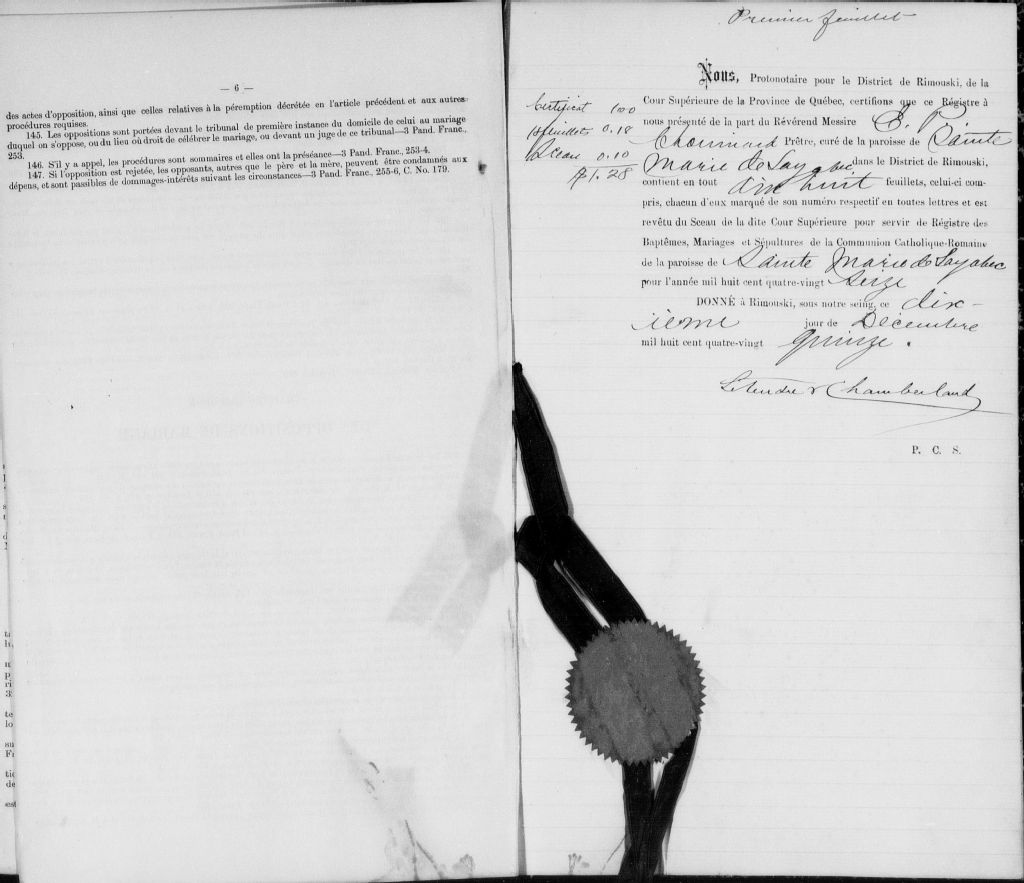 — 6 —
des actes d'opposition, ainsi que celles relatives à la péremption décrétée en l'article précédent et aux autres
procédures requises.
145. Les oppositions sont portées devant le tribunal de première instance du domicile de celui au mariage
duquel on s'oppose, ou du lieu où droit de célébrer le mariage, ou devant un juge de ce tribunal—3 Pand. Franc.,
253.
146. S'il y a appel, les procédures sont sommaires et elles ont la préséance—3 Pand. Franc., 253-4.
147. Si l'opposition est rejetée, les opposants, autres que le père et la mère, peuvent être condamnés aux
dépens, et sont passibles de dommages-intérêts suivant les circonstances—3 Pand. Franc., 255-6, C. No. 179.
Premier feuillet
Nous, Protonotaire pour le District de Rimouski, de la
Cour Supérieure de la Province de Québec, certifions que ce Régistre à
nous présenté de la part du Révérend Messire E. P.
Chouinard Prêtre, curé de la paroisse de Sainte
Marie de Sayabec, dans le District de Rimouski,
contient en tout dix huit feuillets, celui-ci com-
pris, chacun d'eux marqué de son numéro respectif en toutes lettres et est
revêtu du Sceau de la dite Cour Supérieure pour servir de Régistre des
Baptêmes, Mariages et Sépultures de la Communion Catholique-Romaine
de la paroisse de Sainte Marie de Sayabec
pour l'année mil huit cent quatre-vingt Seize
DONNÉ à Rimouski, sous notre seing, ce dix-
ième jour de Décembre
mil huit cent quatre-vingt quinze.
Letendre & Chamberland
P. C. S.
Certificat 1.00
18 feuillets 0.18
Sceau 0.10
$1.28